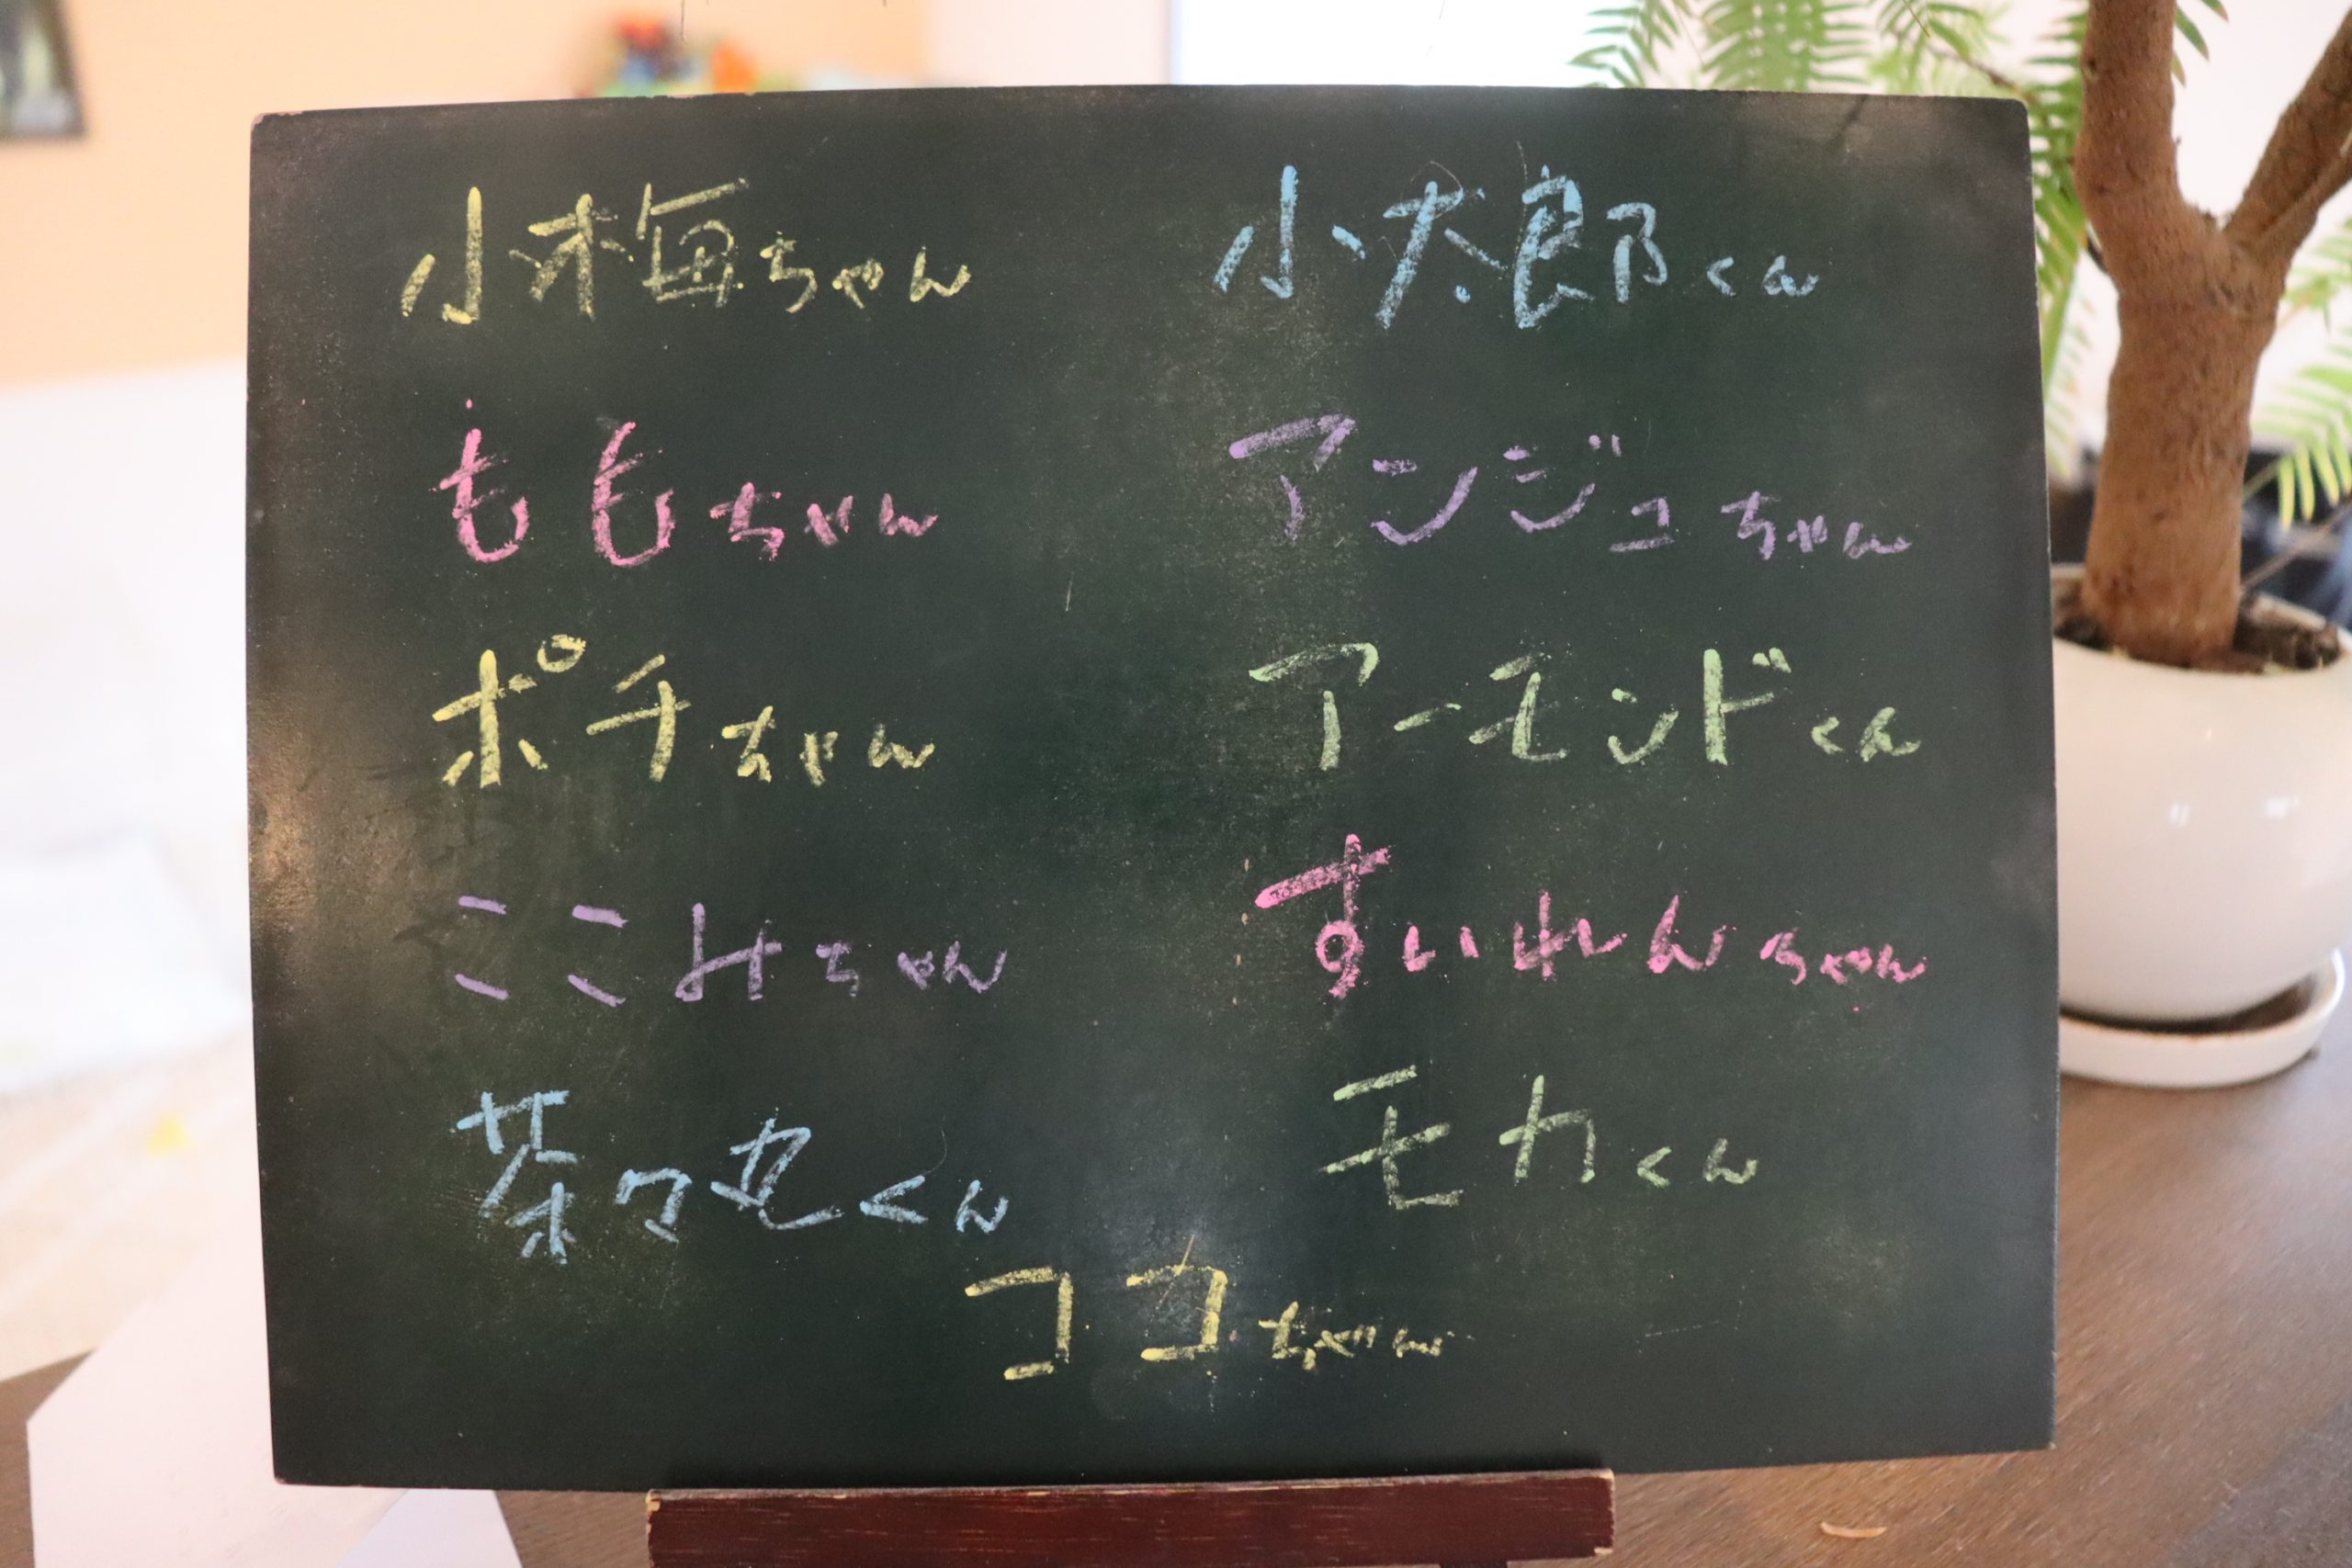 小梅ちゃん 小太郎くん
ももちゃん アンジュちゃん
ポチちゃん アーモンドくん
ここみちゃん すいれんちゃん
茶々丸くん モカくん
ココちゃん